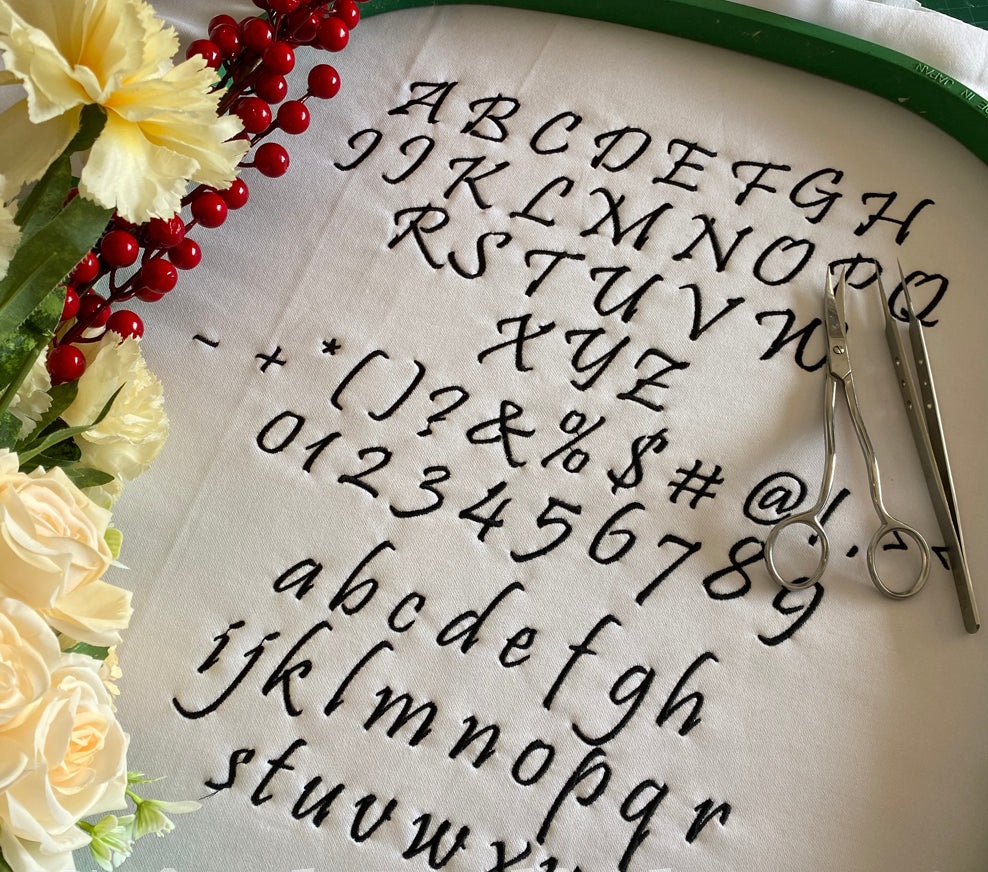 MADE IN JAPAN
A B C D E F G H
I J K L M N O P Q
R S T U V W
X Y Z
- + * ( ) ? & % $ # @ ! .
0 1 2 3 4 5 6 7 8 9
a b c d e f g h
i j k l m n o p q r
s t u v w x y